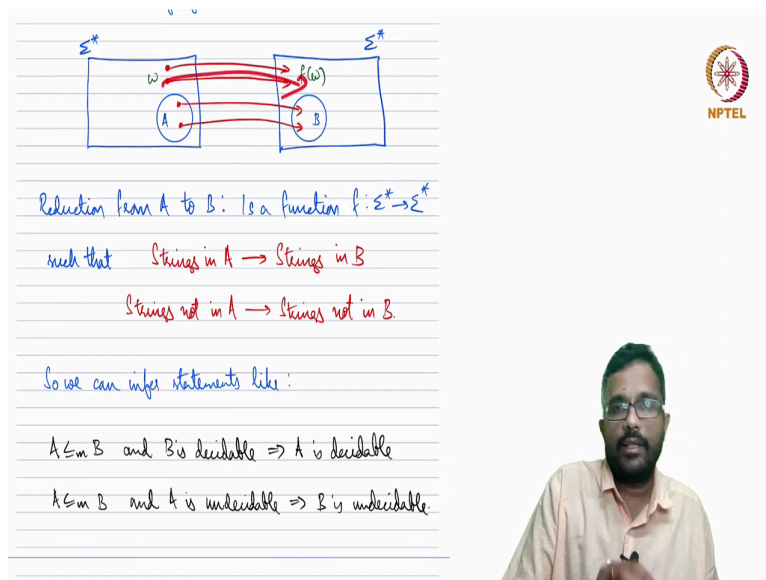 Σ* Σ*
w f(w)
A B
NPTEL
Reduction from A to B: Is a function f: Σ* → Σ*
such that Strings in A → Strings in B
Strings not in A → Strings not in B.
So we can infer statements like:
A ≤m B and B is decidable ⇒ A is decidable
A ≤m B and A is undecidable ⇒ B is undecidable.